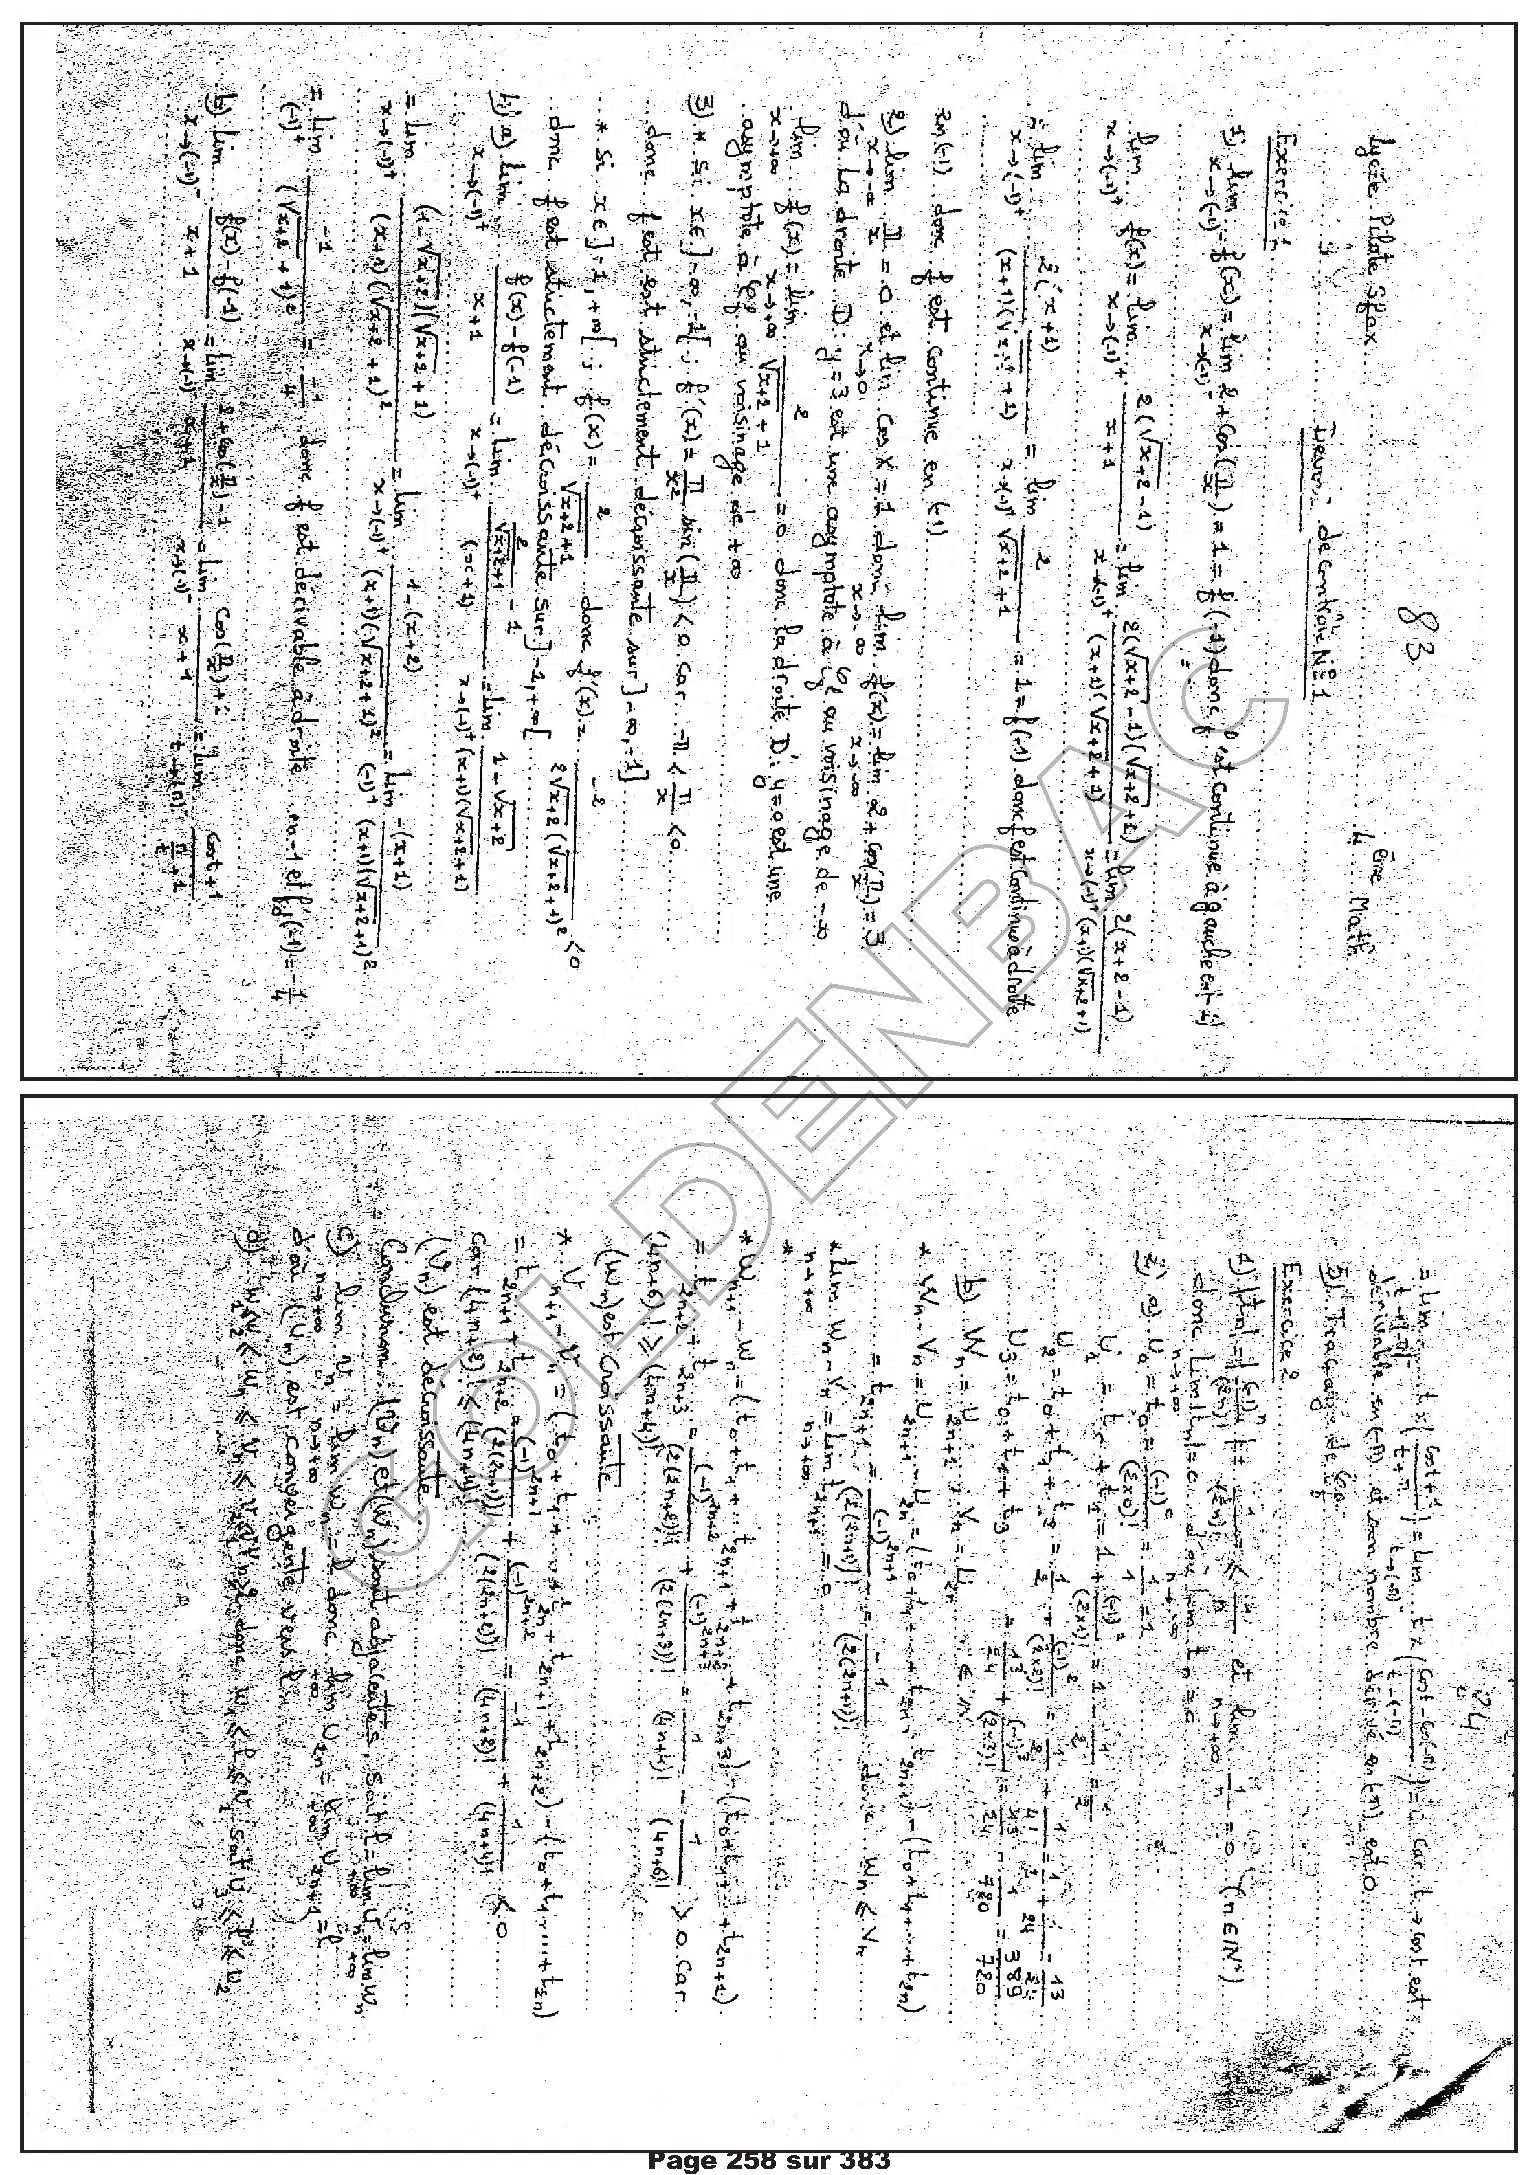 83
Lycée Pilote Sfax 4 ème Math
Devoir de contrôle N°1
Exercice n°1
1) lim x→(-1)⁻ f(x) = lim x→(-1)⁻ 2 + cos(π/x) = 1 = f(-1) donc f est continue à gauche en (-1)
lim x→(-1)⁺ f(x) = lim x→(-1)⁺ 2(√(x+2) -1)/(x+1) = lim x→(-1)⁺ 2(√(x+2) -1)(√(x+2)+1)/((x+1)(√(x+2)+1)) = lim x→(-1)⁺ 2(x+2-1)/((x+1)(√(x+2)+1))
= lim x→(-1)⁺ 2(x+1)/((x+1)(√(x+2)+1)) = lim x→(-1)⁺ 2/(√(x+2)+1) = 1 = f(-1) donc f est continue à droite
en (-1) donc f est continue en (-1)
2) lim x→-∞ π/x = 0 et lim x→0 cos x = 1 donc lim x→-∞ f(x) = lim x→-∞ 2 + cos(π/x) = 3
d'où la droite D : y = 3 est une asymptote à ζf au voisinage de -∞
lim x→+∞ f(x) = lim x→+∞ 2/(√(x+2)+1) = 0 donc la droite D' : y = 0 est une
asymptote à ζf au voisinage de +∞
3) * si x∈]-∞,-1[ ; f'(x) = π/x² sin(π/x) < 0 car -π < π/x < 0
donc f est est strictement décroissante sur ]-∞,-1]
* si x∈]-1,+∞[ ; f(x) = 2/(√(x+2)+1) donc f'(x) = -2/(2√(x+2)(√(x+2)+1)²) < 0
donc f est strictement décroissante sur ]-1,+∞[
4) a) lim x→(-1)⁺ (f(x) - f(-1))/(x+1) = lim x→(-1)⁺ (2/(√(x+2)+1) - 1)/(x+1) = lim x→(-1)⁺ (1-√(x+2))/((x+1)(√(x+2)+1))
= lim x→(-1)⁺ (1-√(x+2))(√(x+2)+1)/((x+1)(√(x+2)+1)²) = lim x→(-1)⁺ (1-(x+2))/((x+1)(√(x+2)+1)²) = lim (-1)⁺ -(x+1)/((x+1)(√(x+2)+1)²)
= lim (-1)⁺ -1/(√(x+2)+1)² = -1/4 donc f est dérivable à droite en -1 et f'd(-1) = -1/4
b) lim x→(-1)⁻ (f(x) - f(-1))/(x+1) = lim x→(-1)⁻ (2+cos(π/x) - 1)/(x+1) = lim x→(-1)⁻ (cos(π/x)+1)/(x+1) = lim t→(-π) (cost+1)/(π/t +1)
= lim t→(-π) t×((cost+1)/(t+π)) = lim t→(-π) t×((cost - cos(-π))/(t-(-π))) = 0 car t→cost est
dérivable en (-π) et son nombre dérivé en (-π) est 0
5) Traçage de ζf
Exercice 2
1) |tn| = |(-1)ⁿ/(2n)!| = 1/(2n)! ≤ 1/n et lim n→+∞ 1/n = 0 (n∈ℕ*)
donc lim n→+∞ |tn| = 0 d'où lim n→+∞ tn = 0
2) a) U0 = t0 = (-1)⁰/(2×0)! = 1/1 = 1
U1 = t0 + t1 = 1 + (-1)¹/(2×1)! = 1 - 1/2 = 1/2
U2 = t0 + t1 + t2 = 1/2 + (-1)²/(2×2)! = 1/2 + 1/4! = 1/2 + 1/24 = 13/24
U3 = t0 + t1 + t2 + t3 = 13/24 + (-1)³/(2×3)! = 13/24 - 1/720 = 389/720
b) Wn = U2n+1, Vn = U2n n∈ℕ
* Wn - Vn = U2n+1 - U2n = (t0+t1+...+t2n+t2n+1) - (t0+t1+...+t2n)
= t2n+1 = (-1)²ⁿ⁺¹/(2(2n+1))! = -1/(2(2n+1))! donc Wn ≤ Vn
* lim n→+∞ Wn - Vn = lim n→+∞ t2n+1 = 0
* Wn+1 - Wn = (t0+t1+...t2n+1+t2n+2+t2n+3) - (t0+t1+...+t2n+1)
= t2n+2 + t2n+3 = (-1)²ⁿ⁺²/(2(2n+2))! + (-1)²ⁿ⁺³/(2(2n+3))! = 1/(4n+4)! - 1/(4n+6)! > 0 car
(4n+6)! ≥ (4n+4)!
(Wn) est croissante
* Vn+1 - Vn = (t0+t1+...+t2n+t2n+1+t2n+2) - (t0+t1+...+t2n)
= t2n+1 + t2n+2 = (-1)²ⁿ⁺¹/(2(2n+1))! + (-1)²ⁿ⁺²/(2(2n+2))! = -1/(4n+2)! + 1/(4n+4)! < 0
car (4n+2)! ≤ (4n+4)!
(Vn) est décroissante
Conclusion : (Vn) et (Wn) sont adjacentes, soit l = lim +∞ Vn = lim +∞ Wn
c) lim n→+∞ Vn = lim n→+∞ Wn = l donc lim +∞ U2n = lim +∞ U2n+1 = l
d'où (Un) est convergente vers l
GOLDENBAC
Page 258 sur 383